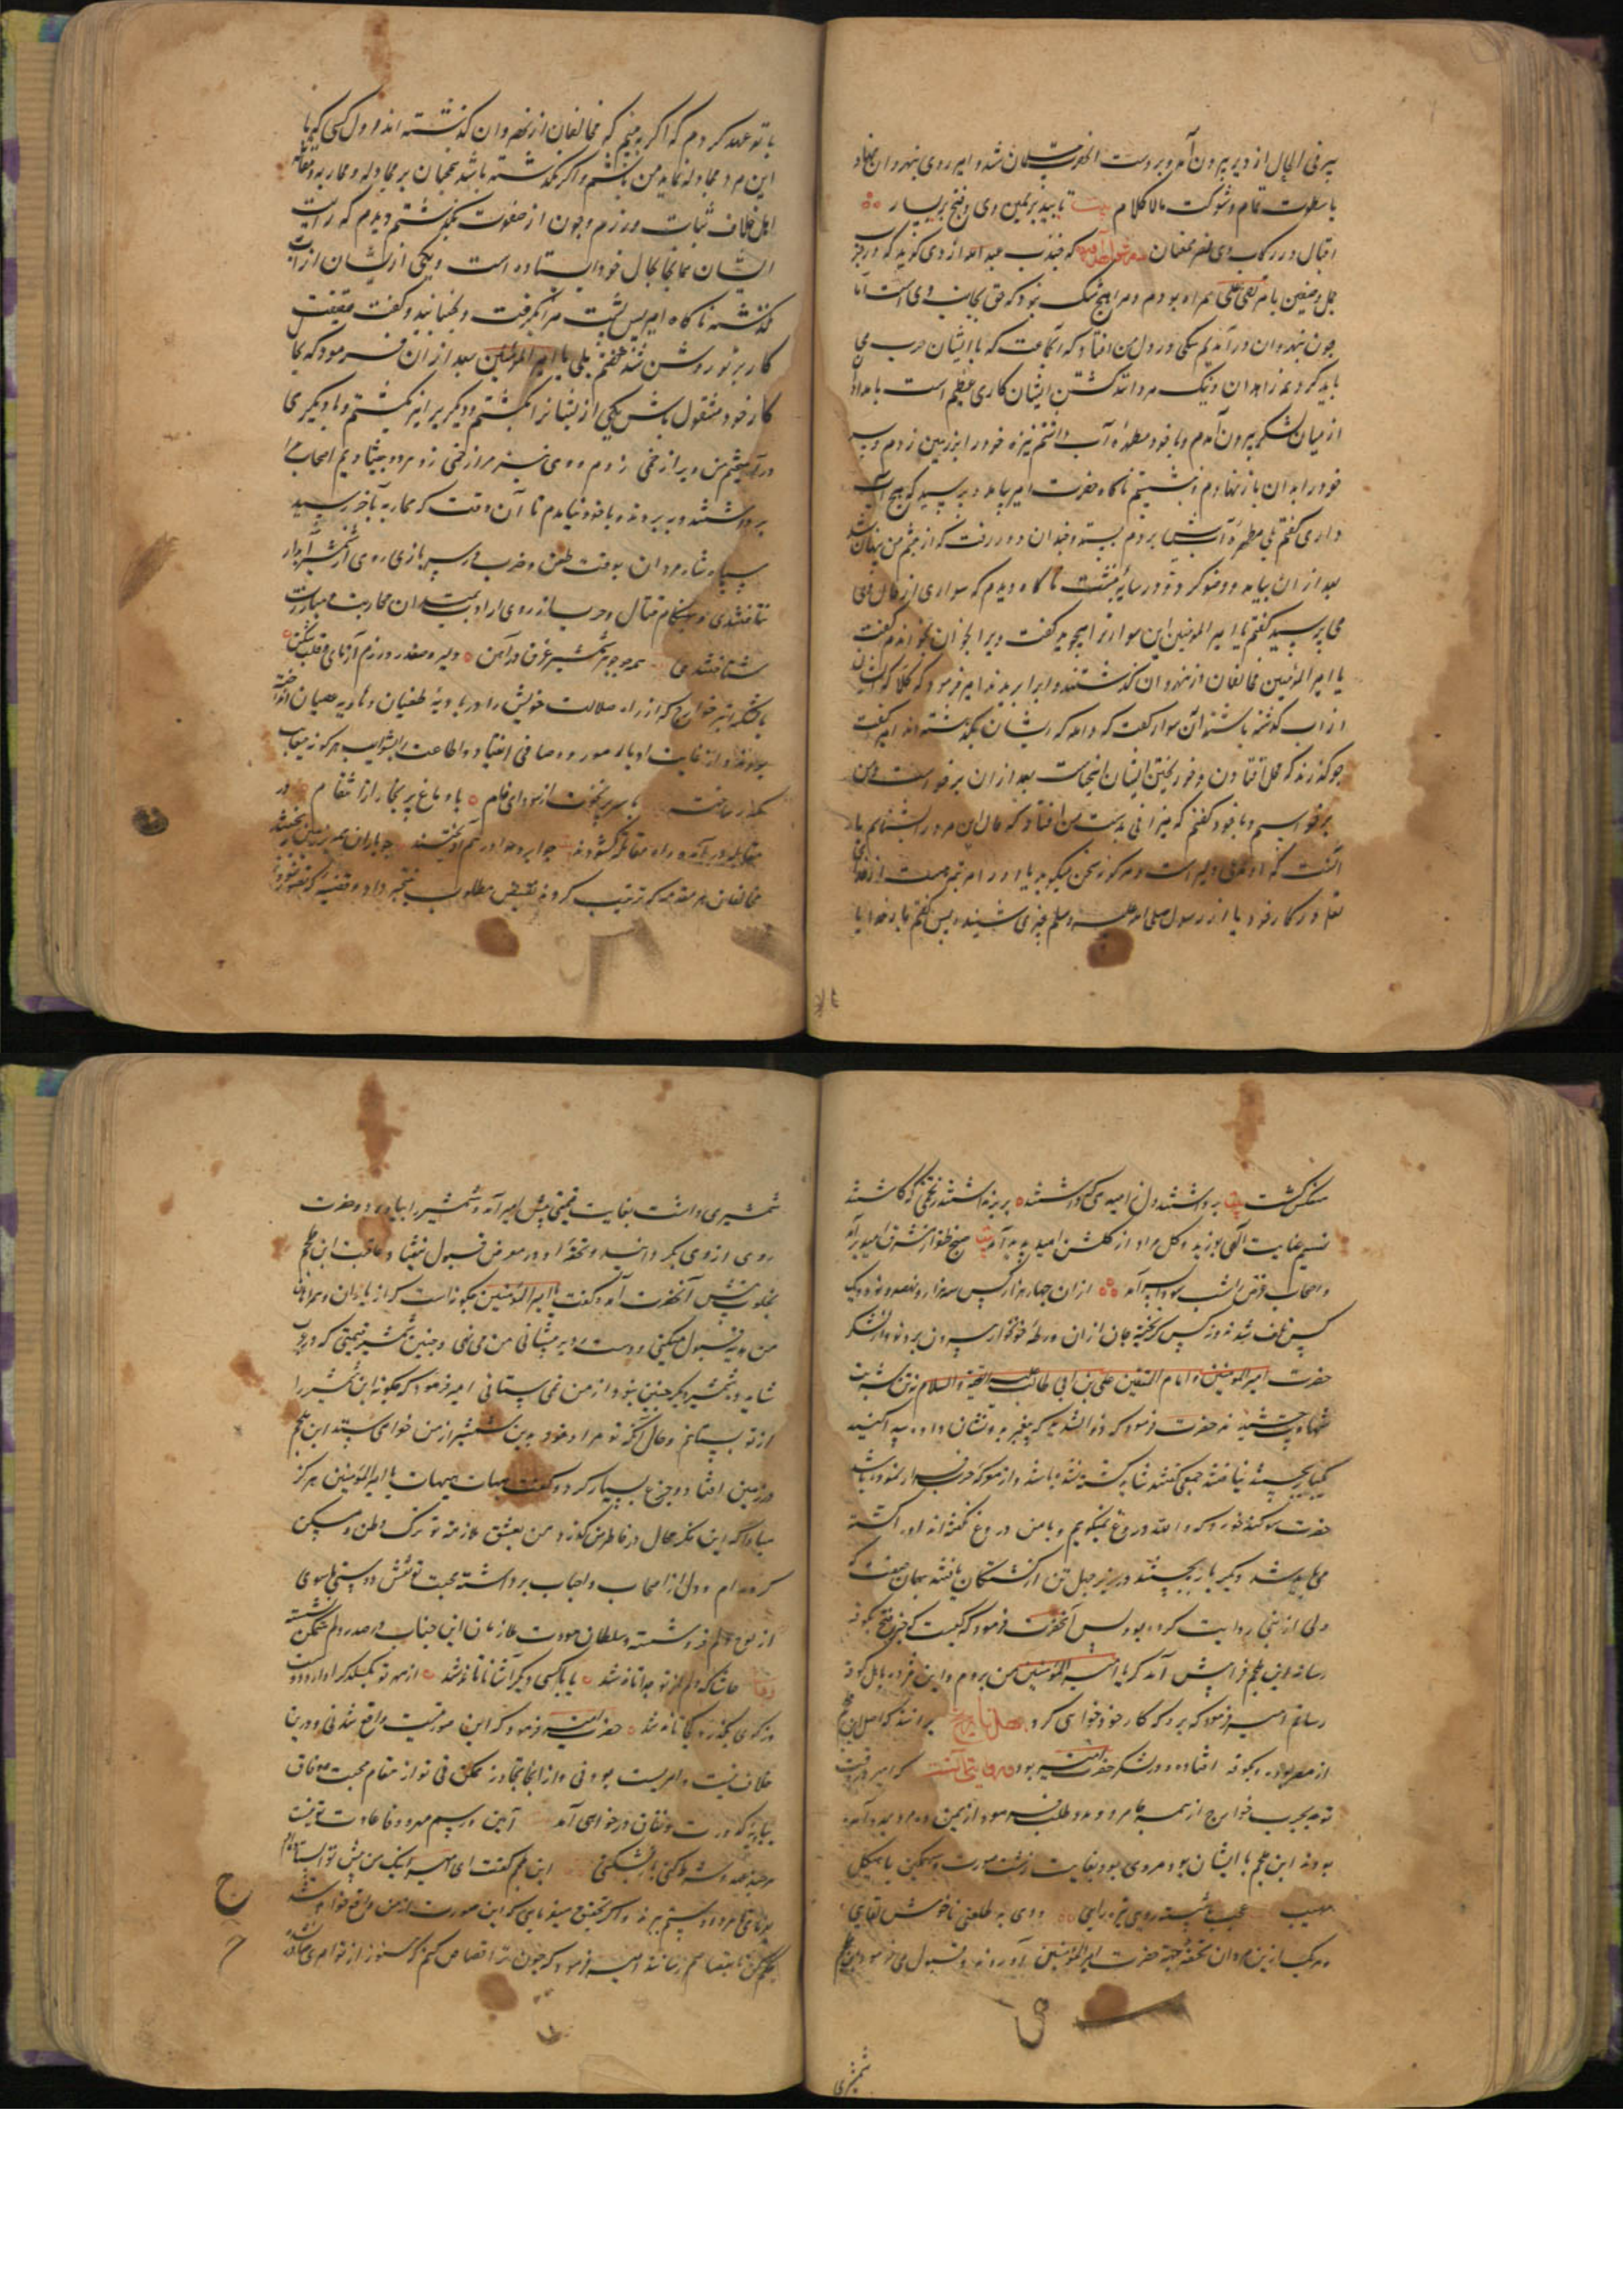 پیر فی الحال از دیر بیرون آمد و بر دست آنحضرت مسلمان شد و امیر روی بنهروان نهاد
با سطوت تمام و شوکت مالا کلام بیت تایید بر یمین وی و فتح بر یسار
اقبال در رکاب وی نصر همعنان که جندب عبد الله ازدی گوید که در حرب
جمل و صفین با مرتضی علی همراه بودم و مرا هیچ شک نبود که حق بجانب وی است اما
چون بنهروان در آمدیم شکی در دل من افتاد که آنجماعت که با ایشان حرب می
باید کرد همه زاهدان و نیک مردانند کشتن ایشان کاری عظیم است بامداد
از میان لشکر بیرون آمدم و با خود مطهرهٔ آب داشتم نیزه خود را بر زمین زدم و سپر
خود را بدان باز نهادم و نشستم ناگاه حضرت امیر بیامد و پرسید که هیچ آب
داری گفتم بلی مطهرهٔ آب پیش بردم بستد و چندان دور رفت که از چشم من پنهان شد
بعد از ان بیامد و وضو کرد و در سایه بنشست ناگاه دیدم که سواری از حال وی
می پرسید گفتم یا امیر المومنین این سوار ترا میجوید گفت ویرا بخوان بخواندم گفت
یا امیر المومنین مخالفان از نهروان گذشتند و ابرا بریدند امیر فرمود که کلا که ایشان
از اب گذشته باشند آن سوار گفت که والله که ایشان بگذشته اند امیر گفت
چگونه گذرند که محل افتادن و خون ریختن ایشان اینجاست بعد از ان برخواست و من
برخواستم و با خود گفتم که میزانی بدست من افتاد که حال این مرد را بشناسم یا
آنست که او مدعی دلیر است و هرگونه سخن میگوید یا او را در امر بینه هست از خدای
تعالی در کار خود یا از رسول صلی الله علیه وسلم چیزی شنیده پس گفتم بار خدایا
با تو عهد کردم که اگر به بینم که مخالفان از نهروان گذشته اند اول کسی که با
این مرد مجادله نماید من باشم و اگر نگذشته باشند همچنان بر مجادله و محاربه و مقاتله
اهل خلاف ثبات ورزم و چون از صفوف بگذشتم دیدم که رایت
ایشان همانجا بحال خود ایستاده است و یکی از ایشان از اب
نگذشته ناگاه امیر پس پشت مرا بگرفت و بجنبانید و گفت حقیقت
کار بر تو روشن شد گفتم بلی یا امیر المومنین بعد از ان فرمود که بجا
کار خود مشغول باش یکی از ایشانرا بکشتم و دیگر یرا نیز بکشتم و با دیگری
در آویختم من ویرا زخمی زدم و وی نیز مرا زخمی زد و هر دو بیفتادیم اصحاب مرا
برداشتند و ببردند و با خود نیامدم تا آن وقت که محاربه بآخر رسید
سپاه شاه مردان بوقت طعن و ضرب بی سپر بازی روی از شمشیر آبدار
نتافتندی و بهنگام قتال و حرب از روی ارادت بمیدان محاربت و مبارزت
شتافتندی همه چو جوهر شمشیر غرق در آهن دلیر و صفدر و رزم آزمای و قلب شکن
با لشکر تیره خوارج که از راه ضلالت خویش را در بادیهٔ طغیان و هاویه عصیان انداخته
بودند و از غایت ادبار
مکدر ساخته با سر پر نخوت از سودای خام با دماغ پر بخار از انتقام در
مقابله در آمده راه مقاتله گشودند چو ابر و هوا درهم آویختند چو باران همی بر زمین ریختند
مخالفان هر مقدمه که ترتیب کردند نقیض مطلوب نتیجه داد و
منعکس گشت بیت برداشتند دل ز امیدی که داشتند برنداشتند ز تخمی که کاشتند
نسیم عنایت آلهی بوزید و گل مراد از گلشن امید بدید آمد بیت صبح ظفر از مشرق امید برآمد
و اصحاب غرض را شب سودا بسر آمد از ان چهار هزار کس سه هزار و نهصد و نود و یک
کس تلف شدند و نه کس گریخته جان از ان ورطهٔ خونخوار بیرون بردند و از لشکر
حضرت امیر المومنین و امام المتقین علی بن ابی طالب علیه التحیة و السلام نه تن شربت
شهادت چشیدند حضرت فرمود که ذو الثدیه که پیغمبر بدو نشان داده پیدا کنید
یکبار بجستند نیافتند جمعی گفتند شاید کشته نشده باشد و از معرکهٔ حرب فرار نموده باشد
حضرت سوگند خورد که والله دروغ نمیگویم و با من دروغ نگفته اند او را کشته
می باید شد دیگر بار بجستند در زیر چهل تن از کشتگان یافتند بهمان صفت که
علی از نبی روایت کرده بود پس آنحضرت فرمود که کیست که خبر فتح بکوفه
رساند ابن ملجم فرا پیش آمد که یا امیر المومنین من بروم و این مژده باهل کوفه
رسانم امیر فرمود که برو که کار خود خواهی کرد برانند که اصل ابن ملجم
از مصر بود و بکوفه افتاده و در لشکر حضرت امیر بود و روایتی آنست که امیر در وقت
توجه بحرب خوارج از همه جا مرد و مدد طلب فرمود از یمن ده مرد مدد آمده
بودند ابن ملجم با ایشان بود مردی بود بغایت زشت صورت و سهمگین با هیکل
مهیب عجب پشته روی تیره رایی ددی به طلعتی ناخوش لقایی
و هر یک از این مردان تحفهٔ جهة حضرت امیر المومنین آوردند و قبول می فرمود ابن ملجم
شمشیری
شمشیری داشت بغایت قیمتی پیش امیر آمد و شمشیر را بیاورد و حضرت
روی از وی بگردانید و تحفهٔ او در معرض قبول نیفتاد و عاقبت ابن ملجم
بخلوت پیش آنحضرت آمد و گفت یا امیر المومنین چگونه است که از یاران و همراهان
من هدیه قبول میکنی و دست رد بر پیشانی من می نهی و چنین شمشیر قیمتی که در عرب
شاید دو شمشیر دیگر چنین بود از من نمی ستانی امیر فرمود که چگونه این شمشیر را
از تو بستانم و حال آنکه تو مراد خود بدین شمشیر از من خواهی ستد ابن ملجم
در زمین افتاد و جزع بسیار کرد و گفت هیهات هیهات یا امیر المومنین هرگز
مبادا که این فکر محال در خاطر من گذرد من بعشق ملازمت تو ترک وطن و مسکن
کرده ام و دل از اصحاب و احباب برداشته محبت تو نقش دوستی ماسوی
از لوح دلم فرو شسته و سلطان مودت ملازمان این جناب در صدر دلم متمکن نشسته
حاشا که دلم از تو جدا تاند شد یا با کسی دیگر آشنا تاند شد از مهر تو بگسلد کرا دارد دوست
وز کوی تو بگذرد کجا تاند شد حضرت امیر فرمود که این صورتیست واقع شدنی و درین
خلاف نیست و امریست بودنی و از آنجا تجاوز ممکن نی تو از مقام محبت و وفاق
ببادیه کدورت و نفاق در خواهی آمد آیین و رسم مهر و وفا عادت تو نیست
هر چند عهد و شرط کنی باز بشکنی ابن ملجم گفت ای امیر اینک من پیش تو ایستاده ام